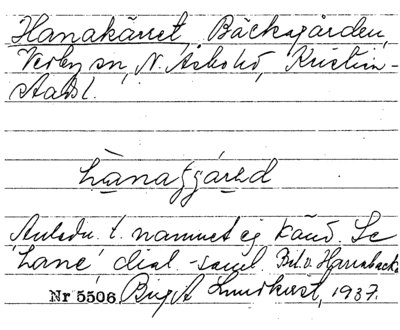 Hanakärret, Bäcksgården,
Verby sn, N. Åsbohd, Kristian-
stads l.
Anledn. t. namnet ej känd. Se
hane, dial.-saml. Bet. v. Hanabacke
Nr 5506 Birgit Lundkvist, 1937.